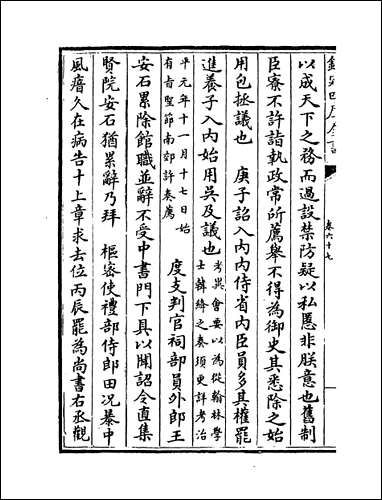 欽定四庫全書
卷六十七
以成天下之務而過設禁防疑以私慝非朕意也舊制
臣寮不許詣執政常所薦舉不得為御史其悉除之始
用包拯議也　庚子詔入內內侍省內臣員多其權罷
進養子入內始用吳及議也考異會要以為從翰林學
士韓絳之奏須更詳考治
平元年十一月十七日始
有旨聖節南郊許奏薦
度支判官祠部員外郎王
安石累除館職並辭不受中書門下具以聞詔令直集
賢院安石猶累辭乃拜　樞密使禮部侍郎田況暴中
風瘖久在病告十上章求去位丙辰罷為尚書右丞觀